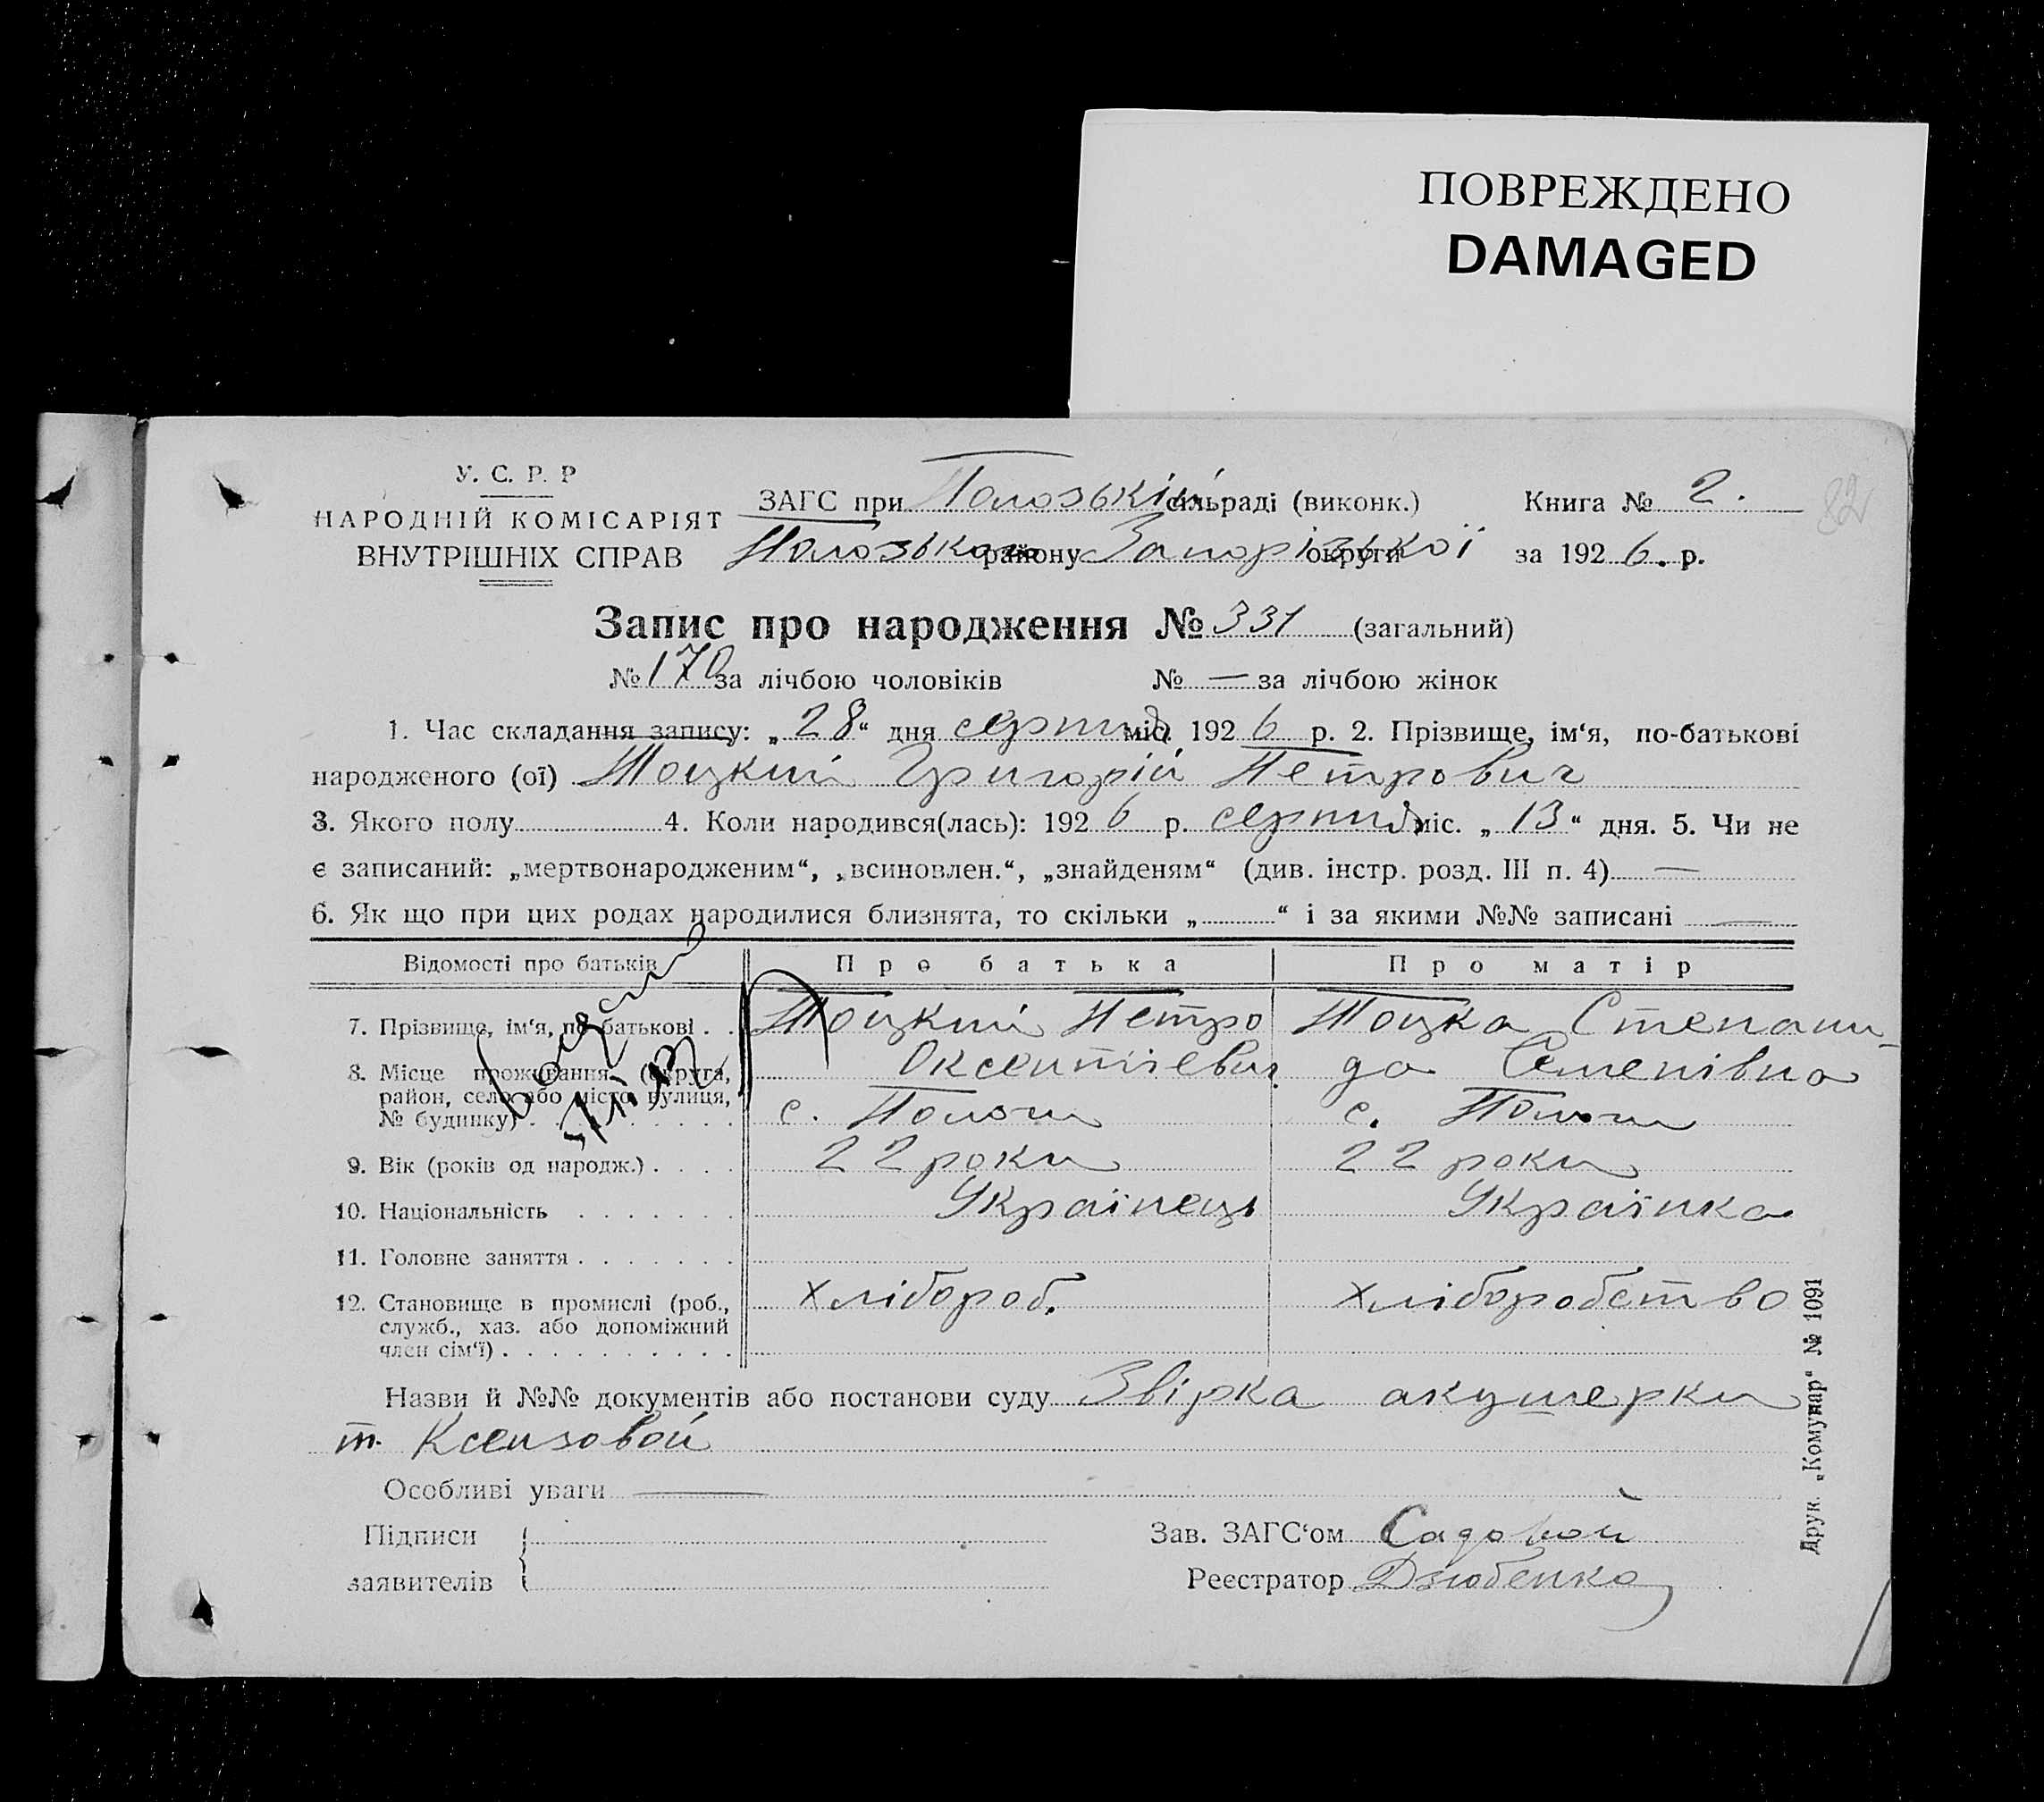 ПОВРЕЖДЕНО
DAMAGED
82
У. С. Р. Р
НАРОДНІЙ КОМІСАРІЯТ
ВНУТРІШНІХ СПРАВ
ЗАГС при Пологській сільраді (виконк.) Книга № 2.
Пологського району Запорізької округи за 1926. р.
Запис про народження № 331 (загальний)
№ 170 за лічбою чоловіків № — за лічбою жінок
1. Час складання запису: „28“ дня серпня міс. 1926 р. 2. Прізвище, ім‘я, по-батькові
народженого (ої) Тоцкий Григорій Петрович
3. Якого полу 4. Коли народився(лась): 1926 р. серпня міс. „13“ дня. 5. Чи не
є записаний: „мертвонародженим“, „всиновлен.“, „знайденям“ (див. інстр. розд. III п. 4) —
6. Як що при цих родах народилися близнята, то скільки „ “ і за якими №№ записані —
Відомості про батьків Про батька Про матір
7. Прізвище, ім‘я, по-батькові . . Тоцкий Петро Тоцка Степани-
Оксентієвич да Семенівна
8. Місце проживання (округа,
район, село або місто, вулиця,
№ будинку) . . . . . . . . . с. Пологи с. Пологи
9. Вік (років од народж.) . . . . 22 роки 22 роки
10. Національність . . . . . . . Українець Українка
11. Головне заняття . . . . . . .
12. Становище в промислі (роб., Хлібороб. Хліборобство
служб., хаз. або допоміжний
член сім‘ї) . . . . . . . . . .
Назви й №№ документів або постанови суду Звірка акушерки
т. Ксензовой
Особливі уваги —
Підписи
заявителів
Зав. ЗАГС‘ом Садовой
Реєстратор Дзюбенко
Друк. „Комунар“ № 1091